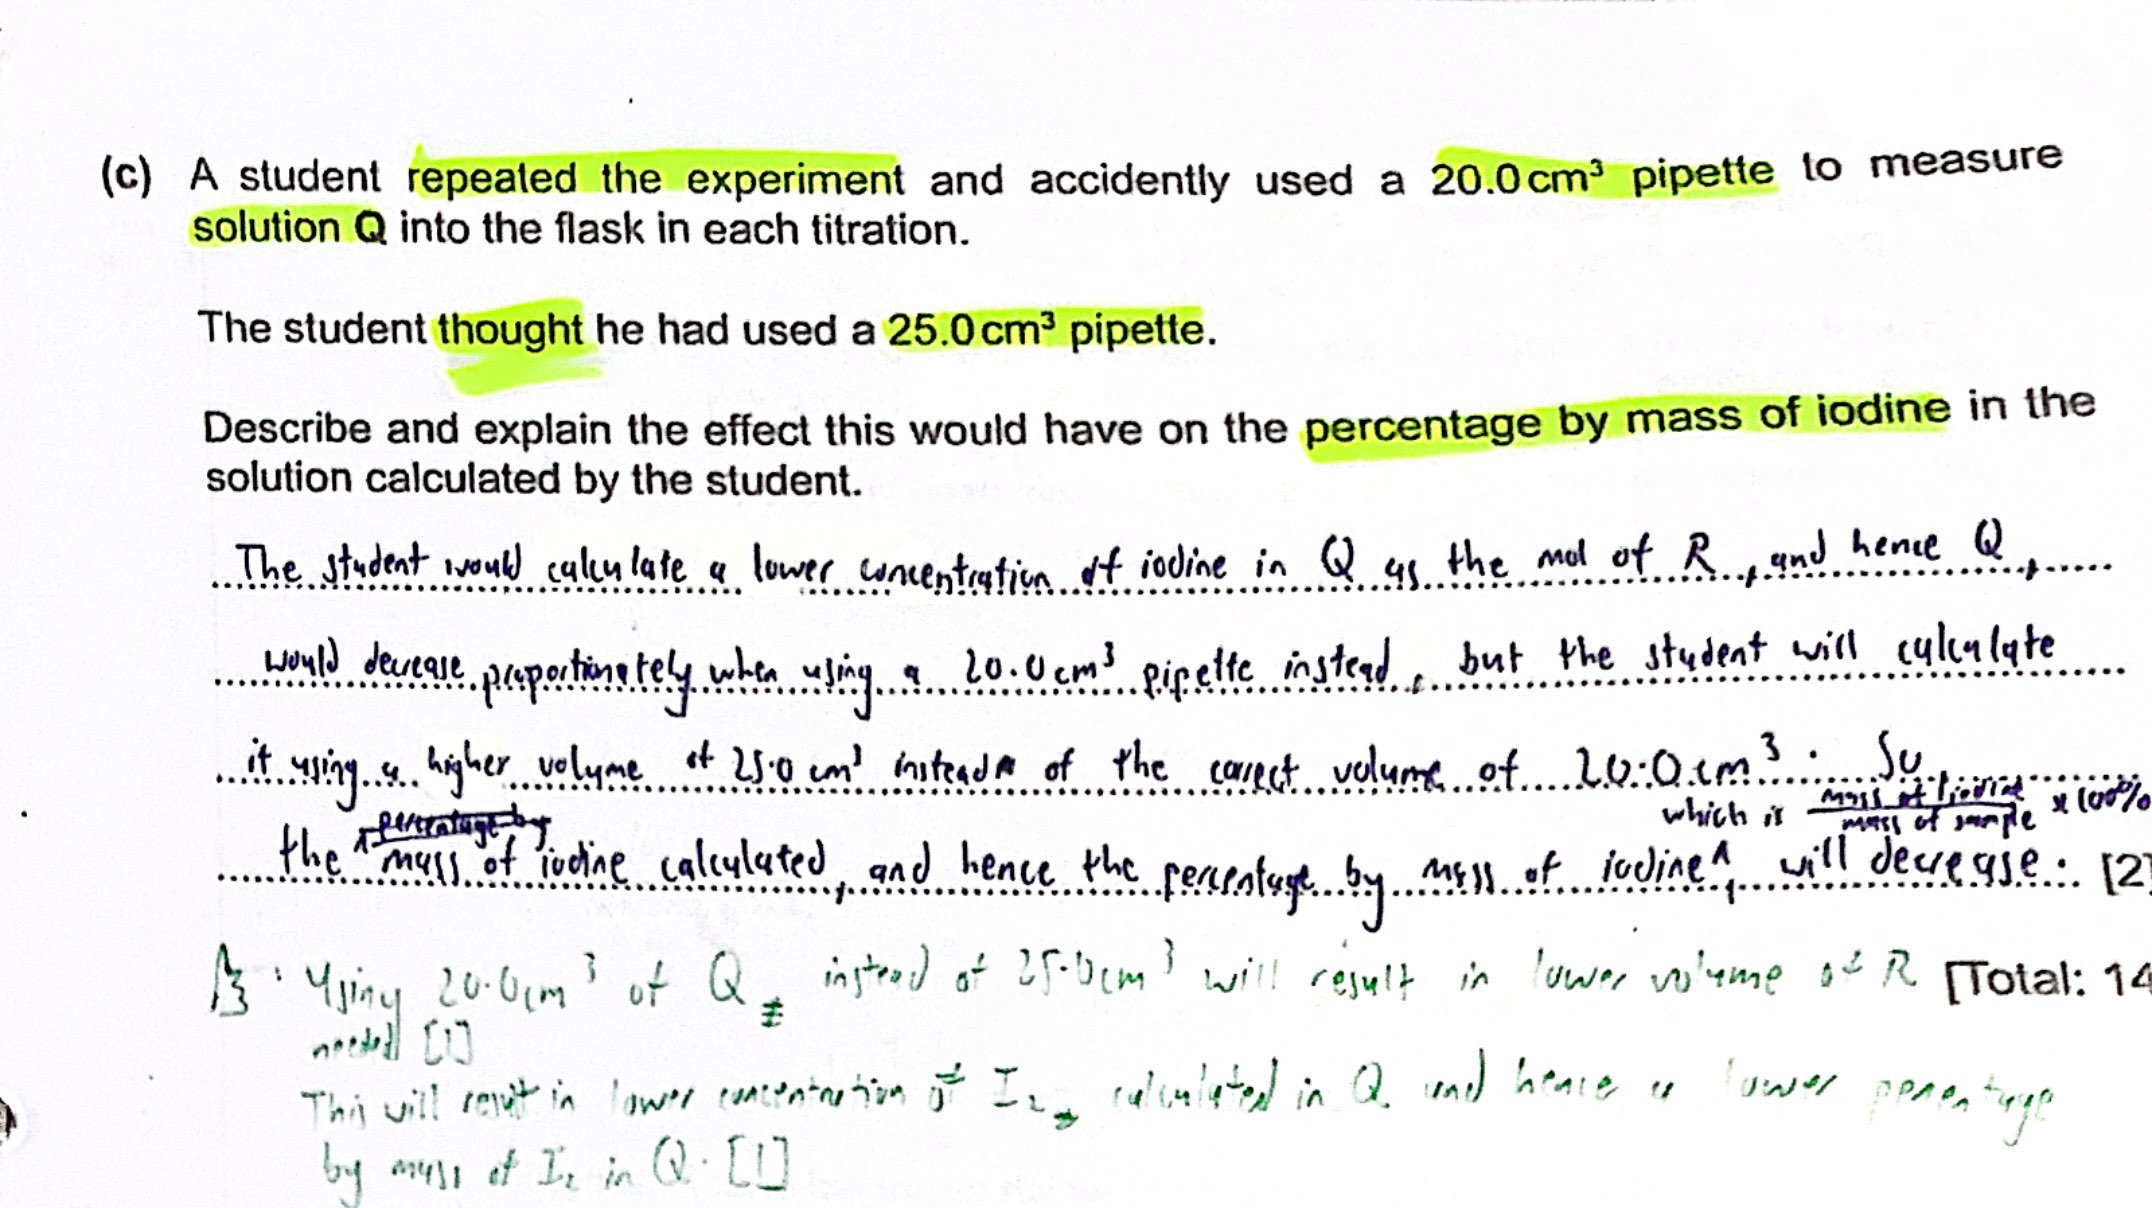 (c) A student repeated the experiment and accidently used a 20.0 cm³ pipette to measure
solution Q into the flask in each titration.
The student thought he had used a 25.0 cm³ pipette.
Describe and explain the effect this would have on the percentage by mass of iodine in the
solution calculated by the student.
The student would calculate a lower concentration of iodine in Q as the mol of R, and hence Q,
would decrease proportionately when using a 20.0 cm³ pipette instead, but the student will calculate
it using a higher volume of 25.0 cm³ instead of the correct volume of 20.0 cm³. So,
which is mass of iodine / mass of sample × 100%
the mass of iodine calculated, and hence the percentage by mass of iodine, will decrease. [2]
Using 20.0cm³ of Q instead of 25.0cm³ will result in lower volume of R [Total: 14
needed [1]
This will result in lower concentration of I₂ calculated in Q and hence a lower percentage
by mass of I₂ in Q. [1]